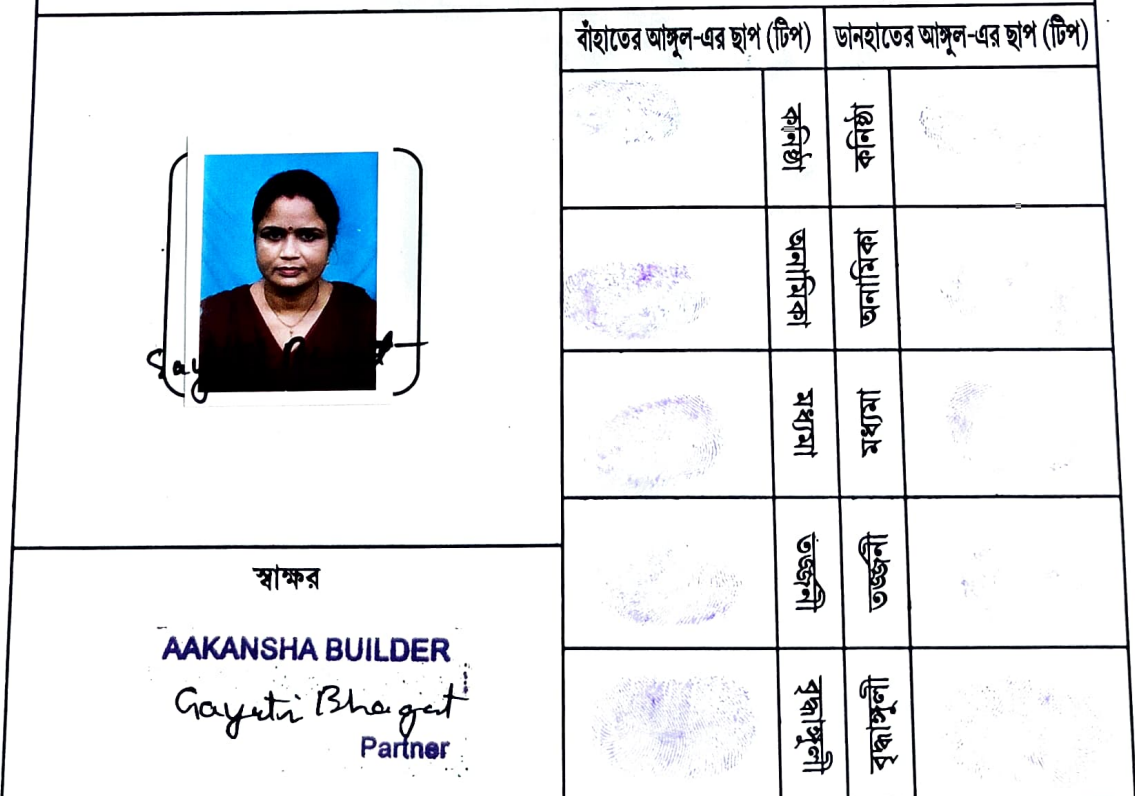 বাঁহাতের আঙ্গুল-এর ছাপ (টিপ) ডানহাতের আঙ্গুল-এর ছাপ (টিপ)
কনিষ্ঠা কনিষ্ঠা
অনামিকা অনামিকা
মধ্যমা মধ্যমা
তর্জ্জনী তর্জ্জনী
বৃদ্ধাঙ্গুলী বৃদ্ধাঙ্গুলী
স্বাক্ষর
AAKANSHA BUILDER
Gayatri Bhagat
Partner